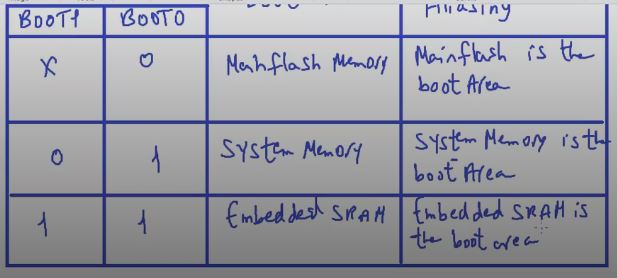 BOOT1 BOOT0 Aliasing
X 0 Mainflash Memory Mainflash is the
boot Area
0 1 SYSTem Memory System Memory is the
boot Area
1 1 Embedded SRAM Embedded SRAM is
the boot area